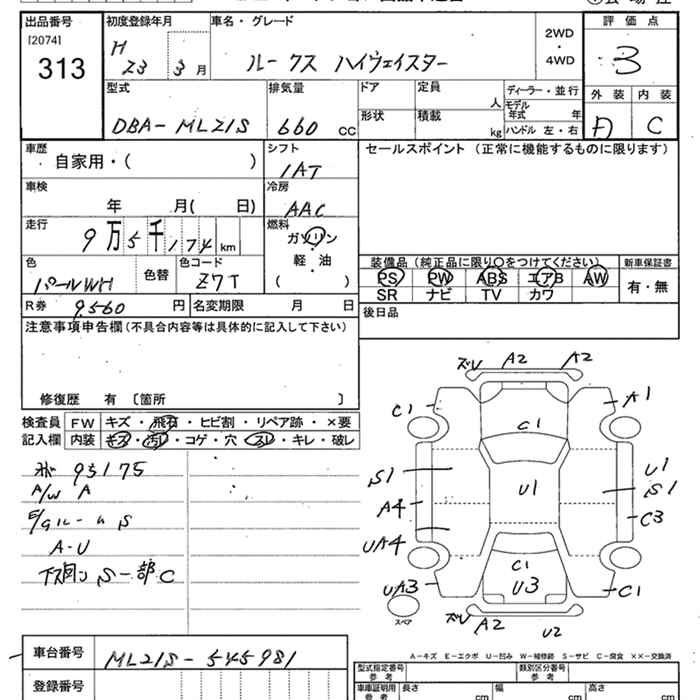 出品番号 初度登録年月 車名・グレード 評価点
[2074]
313
H 23 3月
ルークス ハイウェイスター
2WD
・
4WD
3
型式 排気量 ドア 定員 人 ディーラー・並行 外装 内装
モデル年式 年
DBA-ML21S 660 CC 形状 積載 kg ハンドル 左・右 A C
車歴 シフト セールスポイント (正常に機能するものに限ります)
自家用・( ) IAT
車検 冷房
年 月( 日) AAC
走行 燃料
9万5千174km ガソリン
軽・油
( )
装備品 (純正品に限り○をつけてください) 新車保証書
色 色替 色コード
パールWH Z7T
PS PW ABS エアB AW 有・無
SR ナビ TV カワ
R券 9,560 円 名変期限 月 日
後日品
注意事項申告欄 (不具合内容等は具体的に記入して下さい)
修復歴 有 〔箇所 〕
検査員 FW キズ・飛石・ヒビ割・リペア跡・×要
記入欄 内装 キズ・汚れ・コゲ・穴・スレ・キレ・破レ
95175
A/W A
E/gルーム S
A-U
下廻り S 一部C
ズレ A2 A2
C1 A1
C1
S1 U1 U1
S1
A4 C3
UA4
C1
UA3 U3 C1
スペア
ズレ A2 U2
A-キズ E-エクボ U-凹み W-補修跡 S-サビ C-腐食 ××-交換済
車台番号 ML21S-545981
登録番号
型式指定番号 参考 類別区分番号 参考
車庫証明用 参考 長さ cm 幅 cm 高さ cm